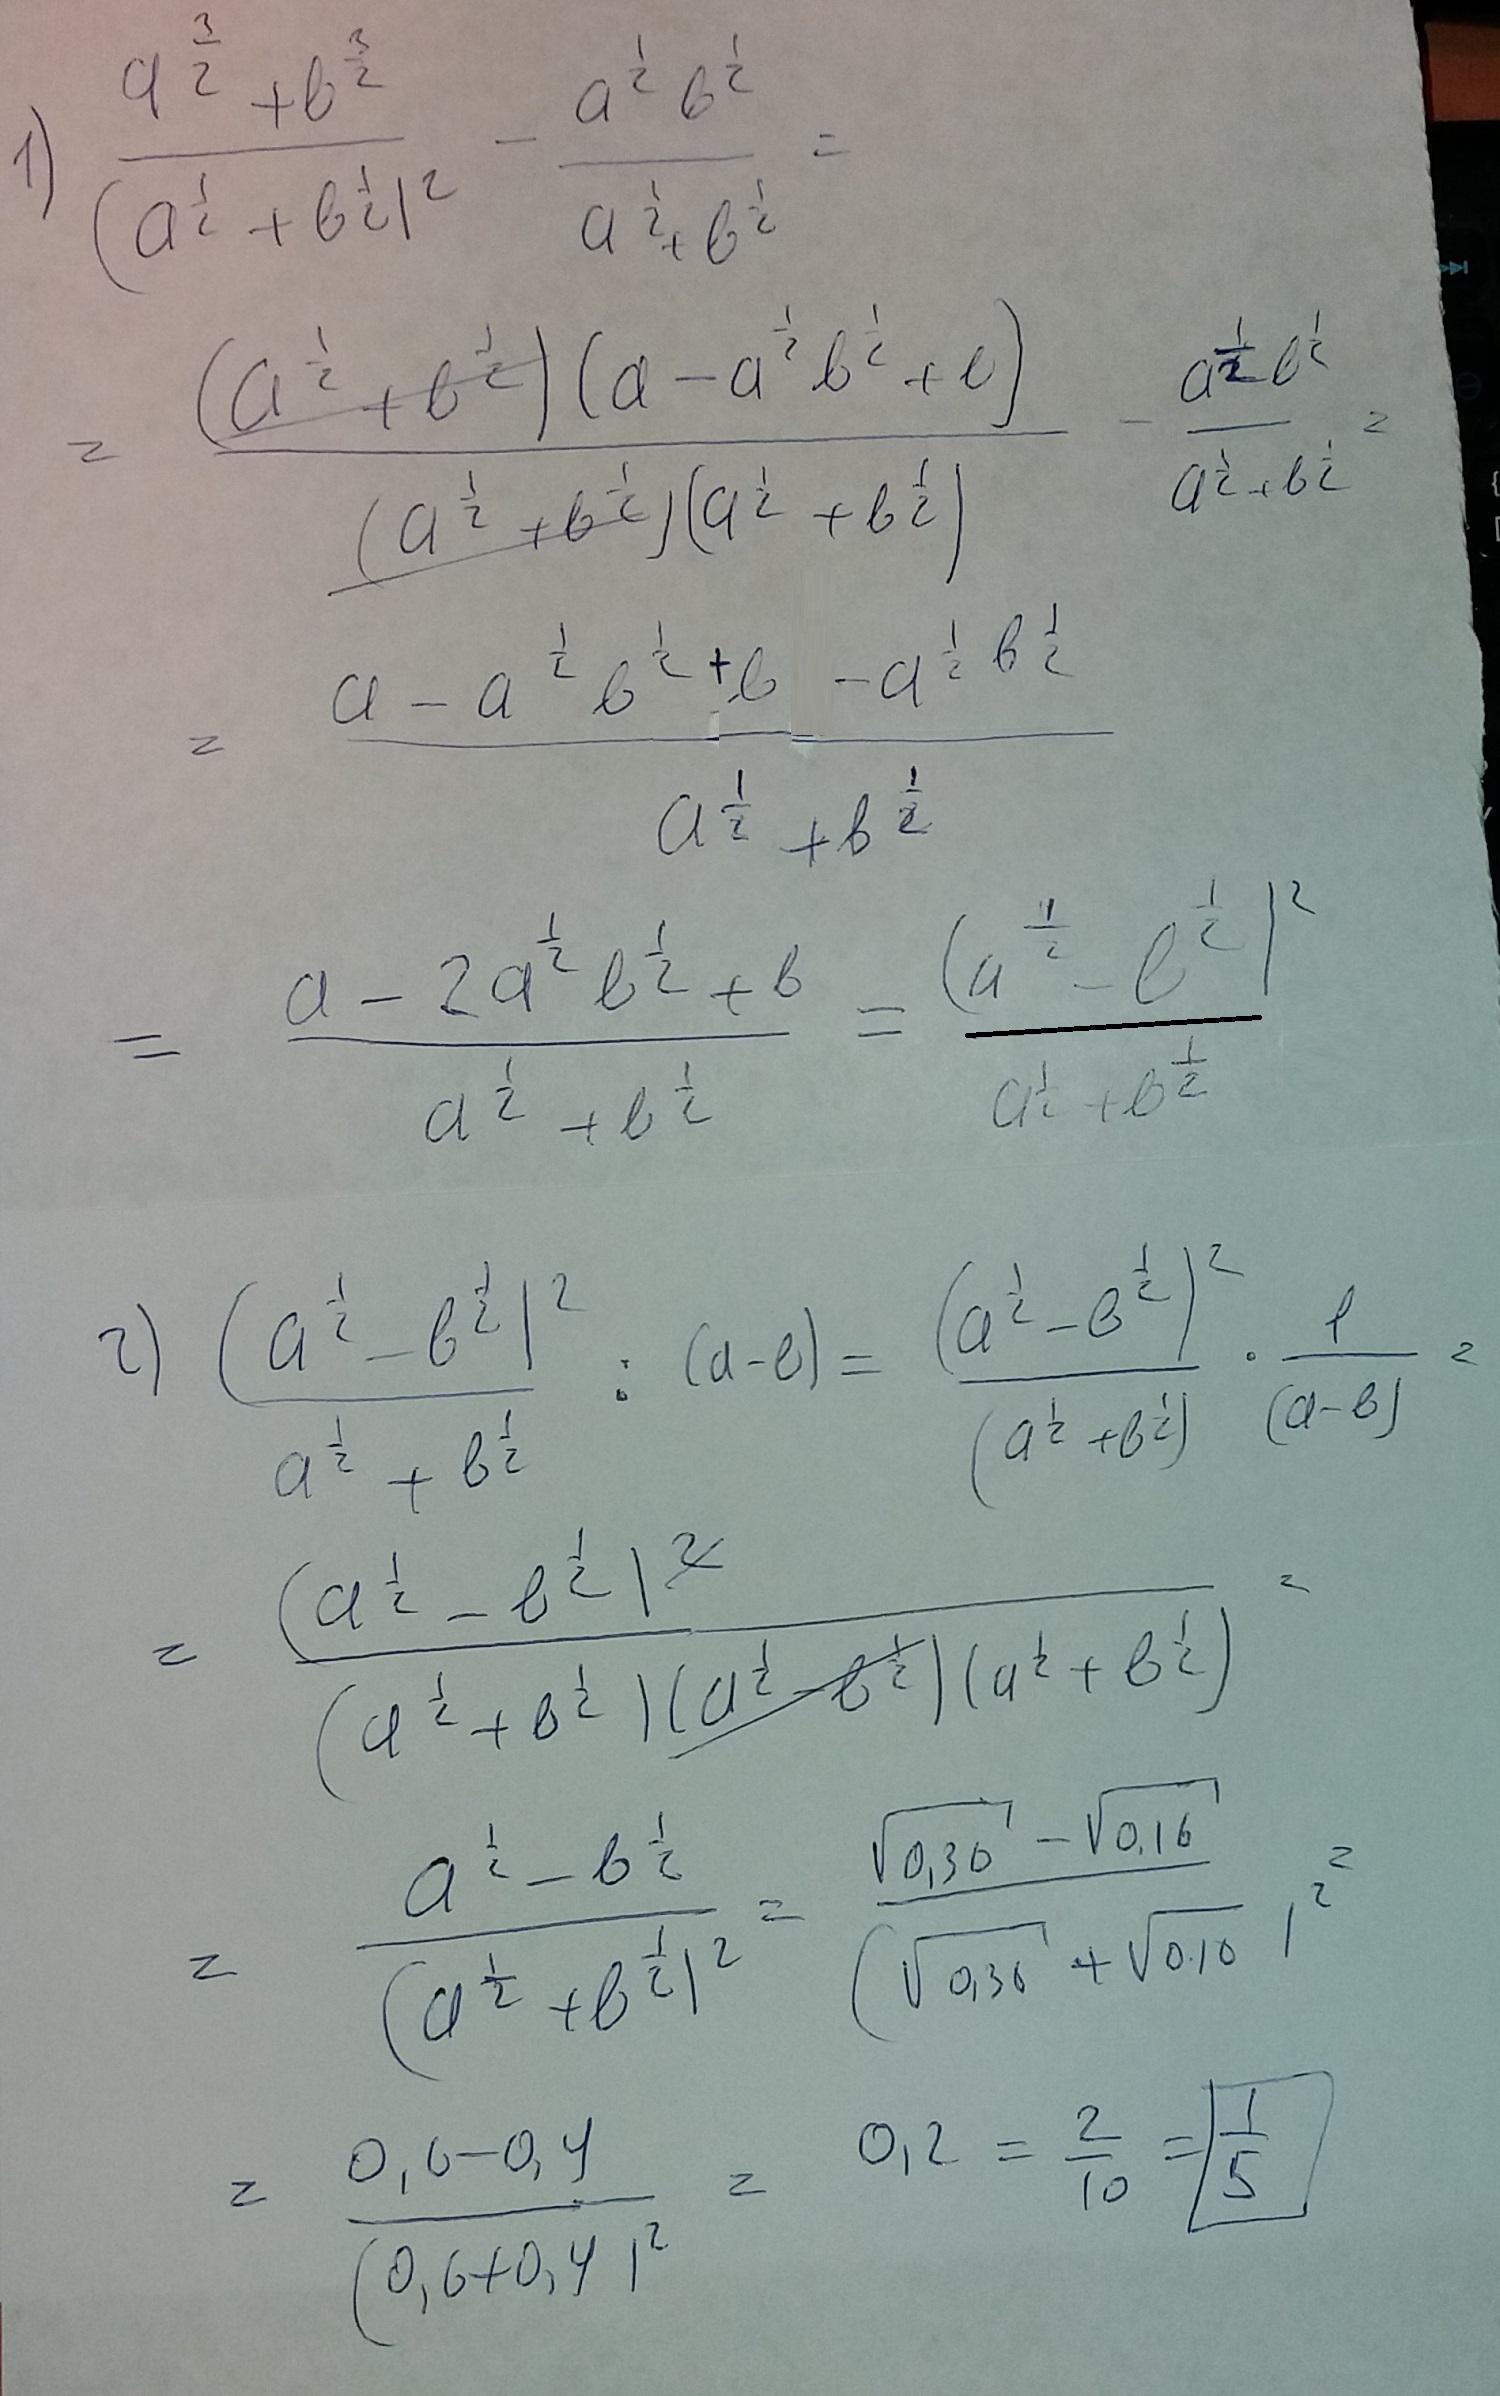 1) (a^(3/2) + b^(3/2)) / (a^(1/2) + b^(1/2))^2 - (a^(1/2) b^(1/2)) / (a^(1/2) + b^(1/2)) =
= ((a^(1/2) + b^(1/2))(a - a^(1/2) b^(1/2) + b)) / ((a^(1/2) + b^(1/2))(a^(1/2) + b^(1/2))) - (a^(1/2) b^(1/2)) / (a^(1/2) + b^(1/2)) =
= (a - a^(1/2) b^(1/2) + b - a^(1/2) b^(1/2)) / (a^(1/2) + b^(1/2))
= (a - 2a^(1/2) b^(1/2) + b) / (a^(1/2) + b^(1/2)) = (a^(1/2) - b^(1/2))^2 / (a^(1/2) + b^(1/2))
2) (a^(1/2) - b^(1/2))^2 / (a^(1/2) + b^(1/2)) : (a-b) = (a^(1/2) - b^(1/2))^2 / (a^(1/2) + b^(1/2)) · 1 / (a-b) =
= (a^(1/2) - b^(1/2))^2 / ((a^(1/2) + b^(1/2))(a^(1/2) - b^(1/2))(a^(1/2) + b^(1/2))) =
= (a^(1/2) - b^(1/2)) / (a^(1/2) + b^(1/2))^2 = (√0,36 - √0,16) / (√0,36 + √0,16)^2 =
= (0,6-0,4) / (0,6+0,4)^2 = 0,2 = 2/10 = 1/5